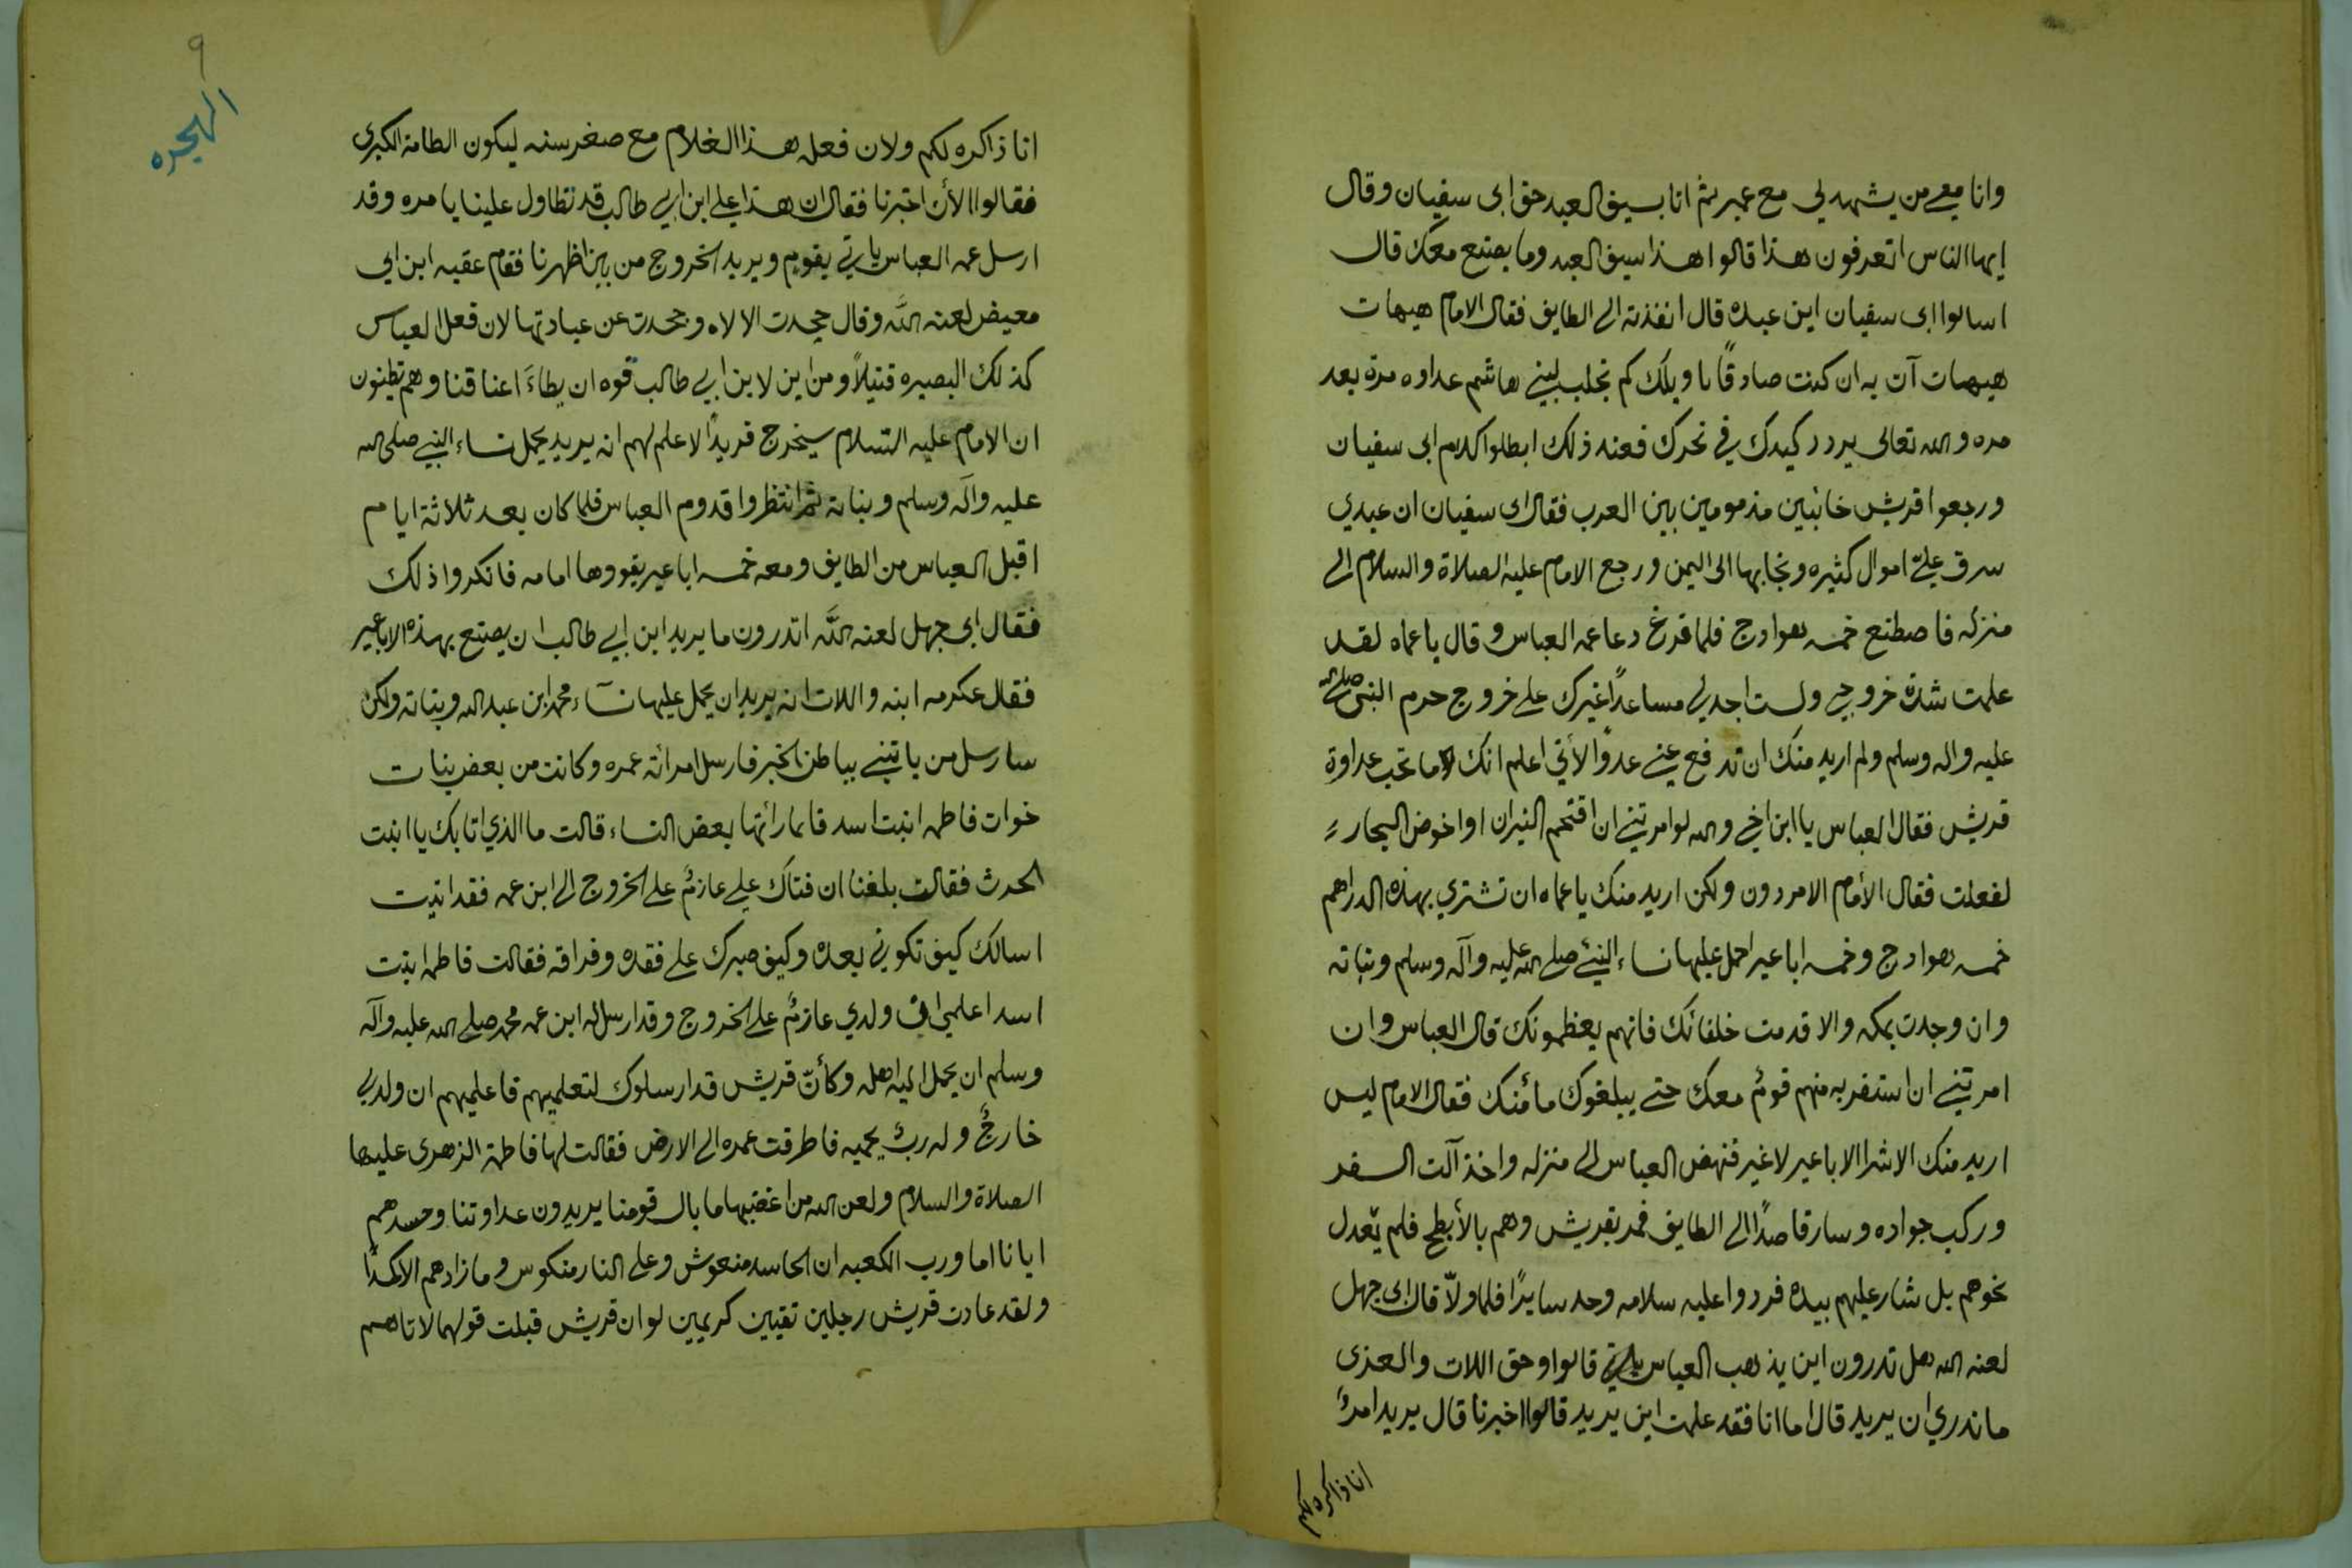 وانا معي من يشهد لي مع عمير ثم اتا بسيف العبد حق ابى سفيان وقال
ايها الناس اتعرفون هذا قالوا هذا سيف العبد وما يصنع معك قال
اسالوا ابى سفيان اين عبده قال انفذته الى الطايف فقال الامام هيهات
هيهات آت به ان كنت صادقًا يا ويلك كم تجلب لبني هاشم عداوه مرة بعد
مره والله تعالى يردد كيدك في نحرك فعند ذلك ابطلوا كلام ابى سفيان
ورجعوا قريش خائبين مذمومين بين العرب فقال ابى سفيان ان عبدي
سرق عليّ اموال كثيره ونجا بها الى اليمن ورجع الامام عليه الصلاة والسلام الى
منزله فاصطنع خمسه هوادج فلما فرغ دعا عمه العباس وقال يا عماه لقد
علمت شدة خروجي ولست اجد لي مساعدًا غيرك على خروج حرم النبي صلى الله
عليه واله وسلم ولم اريد منك ان تدفع عني عدوًا لأني اعلم انك ما تحب عداوة
قريش فقال العباس يا ابن اخي والله لو امرتني ان اقتحم النيران او اخوض البحار
لفعلت فقال الأمام الامر دون ولكن اريد منك يا عماه ان تشتري بهذه الدراهم
خمسه هوادج وخمسه اباعير احمل عليها نساء النبي صلى الله عليه وآله وسلم وبناته
وان وجدت بمكه والا قدمت خلفائك فانهم يعظمونك قال العباس وان
امرتني ان استفر به منهم قومٌ معك حتى يبلغوك مأمنك فقال الامام ليس
اريد منك الا شرا الاباعير لا غير فنهض العباس الى منزله واخذ آلت السفر
وركب جواده وسار قاصدًا الى الطايف فمر بقريش وهم بالأبطح فلم يعدل
نحوهم بل شار عليهم بيده فردوا عليه سلامه وحد سايرًا فلما ولّا قال ابى جهل
لعنه الله هل تدرون اين يذهب العباس قالوا وحق اللات والعزى
ما ندري ان يريد قال اما انا فقد علمت اين يريد قالوا اخبرنا قال يريد امرٌ
انا ذاكره لكم
٩
الهجره
انا ذاكره لكم ولان فعله هذا الغلام مع صغر سنه ليكون الطامة الكبرى
فقالوا الأن اخبرنا فقال ان هذا علي ابن ابي طالب قد تطاول علينا يا مره وقد
ارسل عمه العباس ياتي بقوم ويريد الخروج من بين اظهرنا فقام عقبه ابن ابي
معيض لعنه اللّه وقال جحدت الالاه وجحدت عن عبادتها لان فعل العباس
كذلك البصيره قتيلاً ومن اين لابن ابي طالب قوه ان يطاءَ اعناقنا وهم يظنون
ان الامام عليه السّلام سيخرج فريدًا لا علم لهم انه يريد يحمل نساء النبي صلى الله
عليه وآله وسلم وبناته ثم انتظروا قدوم العباس فلما كان بعد ثلاثة ايام
اقبل العباس من الطايف ومعه خمسه اباعير يقوودها امامه فانكروا ذلك
فقال ابى جهل لعنه اللّه اتدرون ما يريد ابن ابي طالب ان يصنع بهذه الاباعير
فقال عكرمه ابنه واللات انه يريد ان يحمل عليها نسآء محمد ابن عبد الله وبناته ولكن
سارسل من ياتيني بباطن الخبر فارسل امرائه عمره وكانت من بعض بنات
خوات فاطمه ابنت اسد فلما رائتها بعض النساء قالت ما الذي اتا بك يا ابنت
الحدث فقالت بلغنا ان فتاك علي عازمٌ على الخروج الى ابن عمه فقد اتيت
اسالك كيف تكوني بعده وكيف صبرك على فقده وفراقه فقالت فاطمه ابنت
اسد اعلمي ان ولدي عازمٌ على الخروج وقد ارسل له ابن عمه محمد صلى الله عليه وآله
وسلم ان يحمل اليه اهله وكأنّ قريش قد ارسلوك لتعلميهم فاعلميهم ان ولدي
خارجٌ وله ربٌ يحميه فاطرقت عمره الى الارض فقالت لها فاطمة الزهرى عليها
الصلاة والسلام ولعن الله من اغضبها ما بال قومنا يريدون عداوتنا وحسدهم
ايانا اما ورب الكعبه ان الحاسد منعوش وعلى النار منكوس وما زادهم الا كمدًا
ولقد عادت قريش رجلين تقيين كريمين لو ان قريش قبلت قولهما لاتاهم